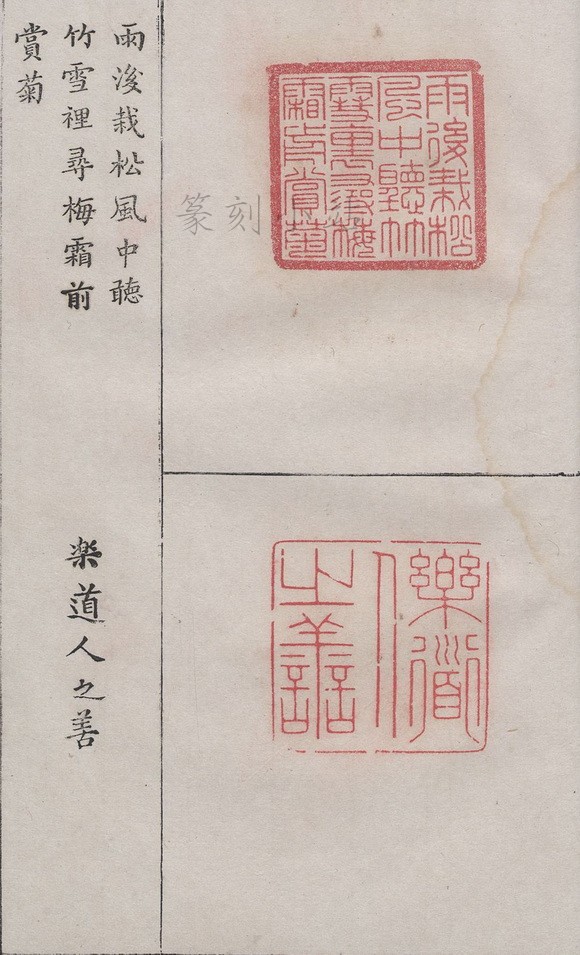 雨後栽松風中聽
竹雪裡尋梅霜前
賞菊
雨後栽松
風中聽竹
雪裏尋梅
霜前賞菊
篆刻
楽道人之善
樂道人
之善